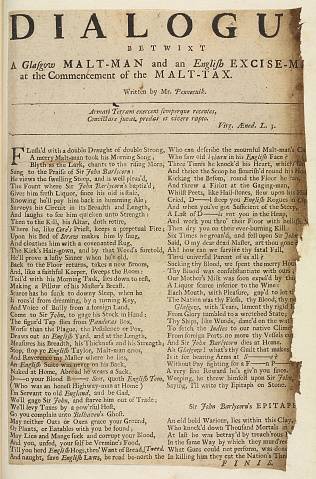 DIALOGU
BETWIXT
A Glasgow MALT-MAN and an English EXCISE-M
at the Commencement of the MALT-TAX.
Written by Mr. Pennecuik.
Armati Terram exercent semperque recentes,
Convectare juvat, prædas et vivere rapto.
Virg. Æned. L.
FLush'd with a double Draught of double Strong,
A merry Malt-man took his Morning Song;
Blyth as the Lark, chants to the rising Morn,
Sung to the Praise of Sir John Barlycorn:
He views the swelling Steep, and is well pleas'd,
The Fount where Sir John Barlycorn's baptis'd,
Gives him fresh Liquor, since his old is sour,
Knowing he'll pay him back in humming
Surveys his Circuit in its Breadth and Length,
And laughs to see him quicken unto Strength:
Then to the Kill, his Altar, doth retire,
Where he, like Priest, keeps a perpetual Fire;
Upon his Bed of Straws makes him by snug,
And cloaths him with a covenanted Rug,
The Kirk's Hair-gown, and by that Words foretold,
He'll prove a lusty Sinner when he's old.
Back to the Floor returns, takes a new Broom,
And, like a faithful Keeper, sweeps the Room:
Toil'd with his Morning Task, lies down to rest,
Making a Pillow of his Mother's Breast.
Scarce has he suck in drowsy Sleep, when he
Is rous'd from dreaming, by a turning Key,
And Voice of Bully from a foreign Land,
Come to Sir John, with Stick in Hand:
The figur'd Tap flies from Pandora's Box,
Worse than the Plague, the Pestilence or Pox,
Draws out an English Yard, and at the Length,
Measures his Breadth, his Thickness and his Strength;
Stop, stop ye English Taylor, Malt-man cries,
And Reverence my Master where he lies,
An English Suite was never on his Back,
Bred at Home, Abroad he wears a Sack.
D—n your Blood Sirr, quoth English Tom,
(Who was an honest Highway-man at Home)
I'm Servant to old England, and be Gad,
We'll gage Sir John, and starve him out of Trade;
We'll levy Taxes by a powerful Host,
Go you complain unto Ghost.
May neither Oats or Oxen grace your Ground,
Or Plants, or Eatables with you be found;
May Lice and Mange suck and corrupt your Blood,
And you, unfed, your self be Vermine's Food,
Till you herd English Hogs, thro' Want of Bread,
And naught, save English Laws, be read be-north the Tweed.
Who can describe the mournful Malt-man's
Who saw old in his English Face?
Three Times he knock'd his Heart, which
And thrice the Scoop he flourish'd round his
Kicking the Besom, round the Floor he
And threw a Firlot at the Gaging-man,
Whilst Peats, like Hail-stones, flew upon his
Cried, D— keep you English Rogues at
And when you've got Sufficient of the Steep,
A Lash of D— is not you in the Heap,
And work you thro' their Floor with
Then dry you on their ever-burning Kill.
Six Times he groan'd, and fell upon Sir John
Said, O my dear dead Master, art thou gone
And how can we survive thy fatal Fall,
Thou universal Parent of us all?
Sucking thy Blood, we spent the merry Hours,
Thy Blood was consubstantiate with ours;
Our Mother's Milk was soon expell'd by thine,
A Liquor fierce inferior to the Wine:
Each Mouth, with Pleasure, gap'd to let it
The Nation was the Flesh, thy Blood, thy
Glasgow, with Tears, lament thy rigid
From Glory tumbled to a wretched State;
Thy Ships, like Words, dwin'd on the
To fetch the Indies to our native
From foreign Ports no more thy Vessels come,
And Sir John Barlycorn dies at Home.
Ah Glasgow! what's thy Guilt that makes
Is it for bearing Arms at
Without Pay fighting for a
A very fine Reward he's giv'n you
Weeping, he threw himself upon Sir John,
Saying, I'll write thy Epitaph on Stone.
Sir John Barlycorn's EPITAPH
An old bold Warrior, lies within this Clay,
Who knock'd down Thousand Mortals in a
At last he was betray'd by treach'rous
In the same Way by which they murder'd
What Guns could not perform, was done
In killing him they eat the Nation's
FINIS.